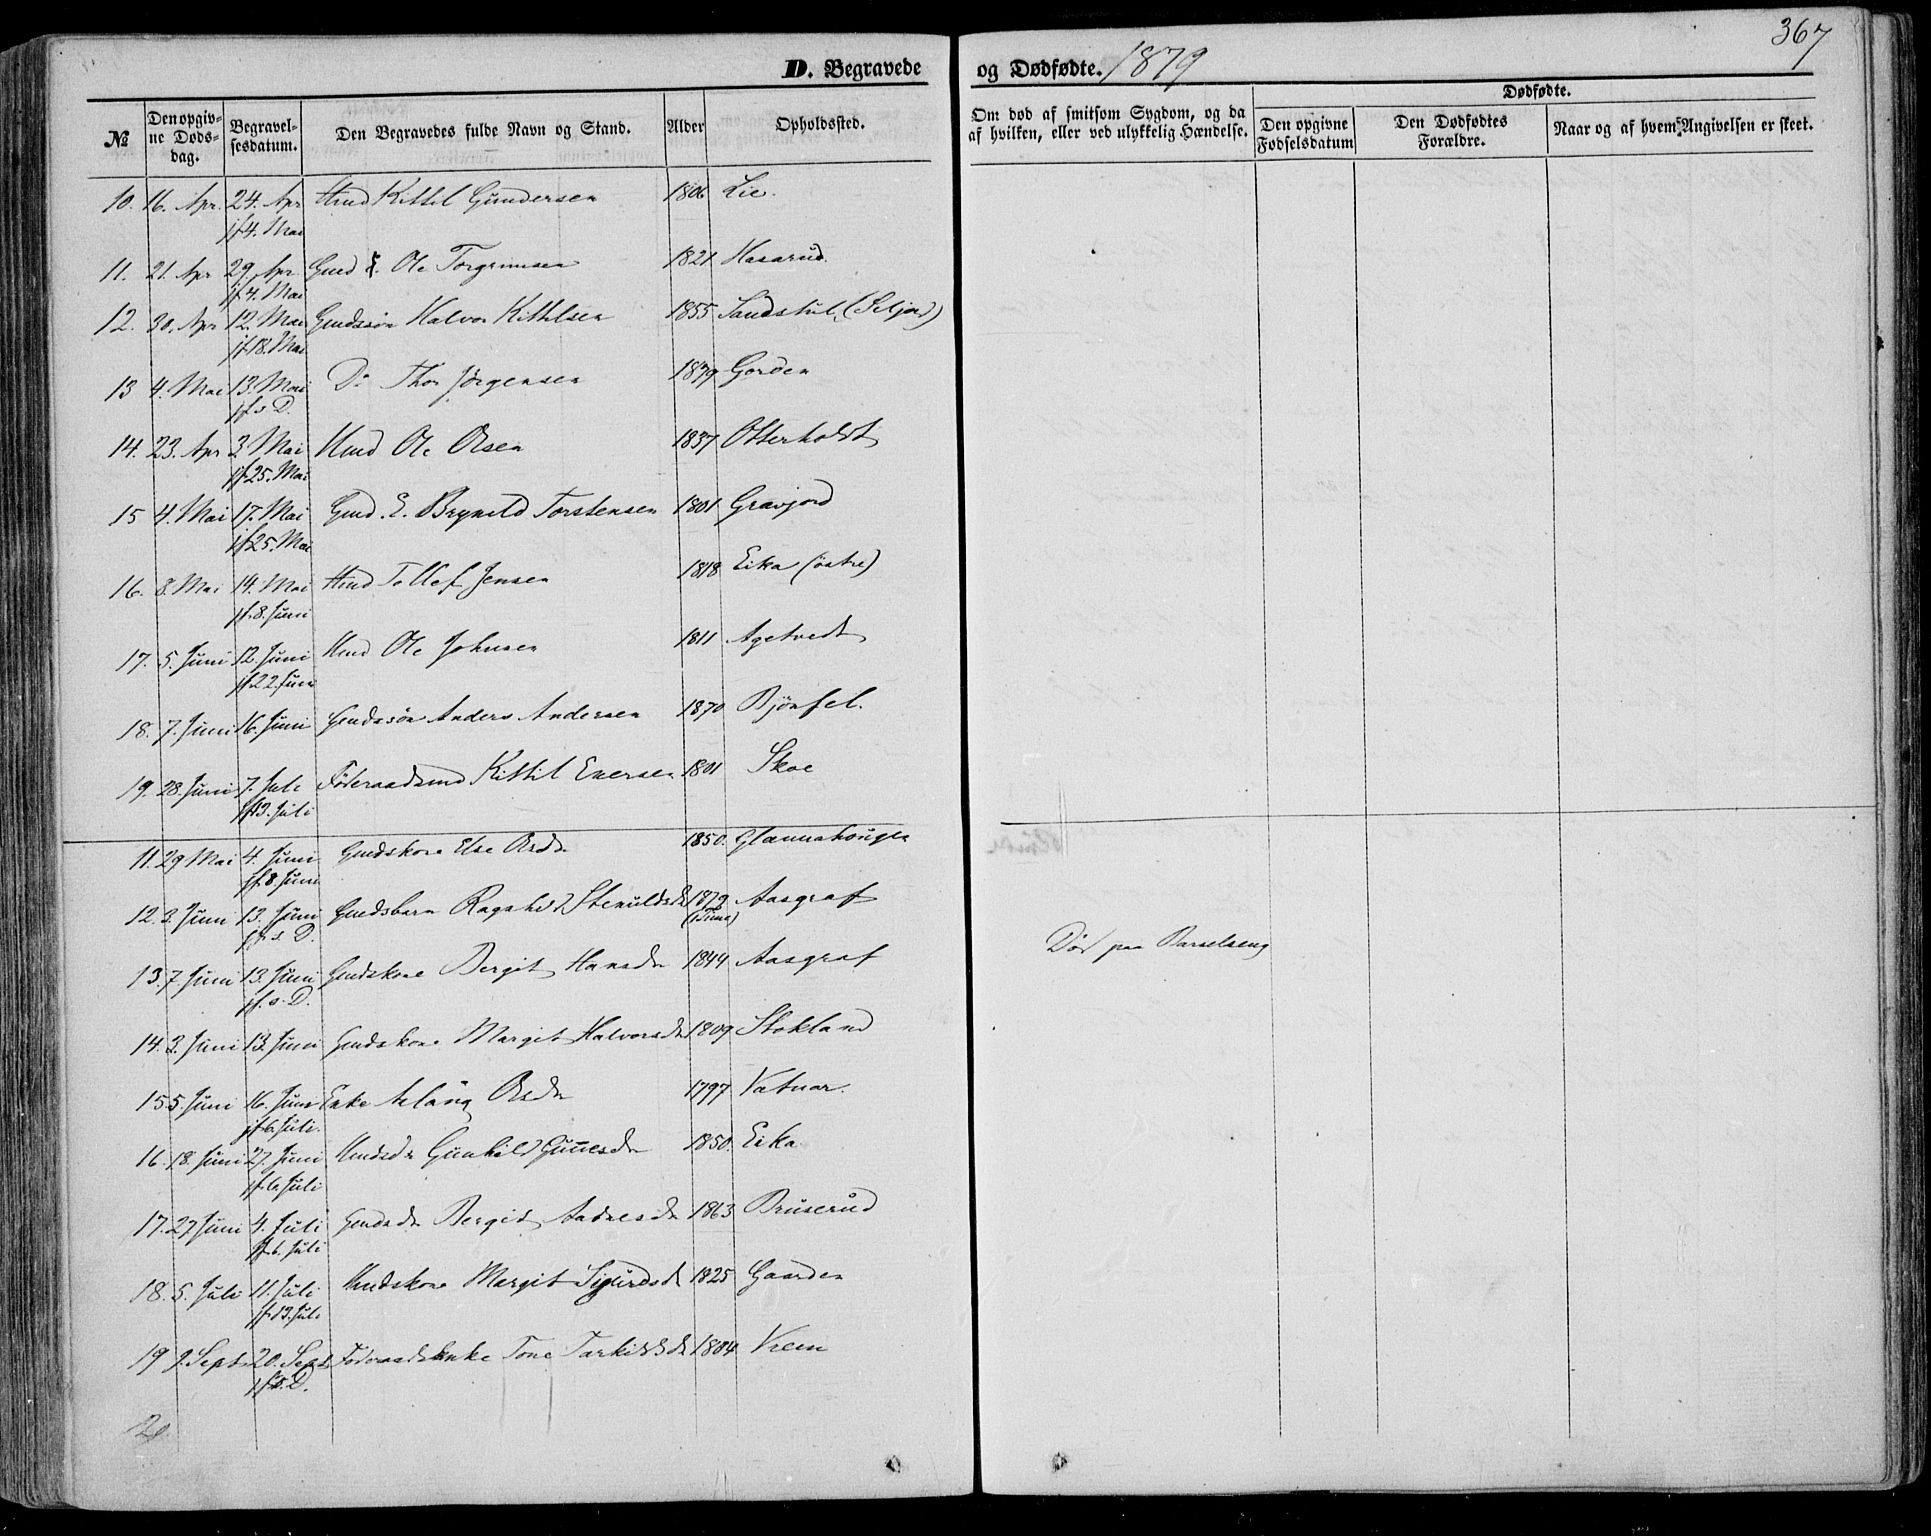 367
D. Begravede og Dødfødte. 1879
№ Den opgivne Døds-dag. Begravel-sesdatum. Den Begravedes fulde Navn og Stand. Alder Opholdssted. Om død af smitsom Sygdom, og da af hvilken, eller ved ulykkelig Hændelse. Dødfødte. Den opgivne Fødselsdatum Den Dødfødtes Forældre. Naar og af hvem Angivelsen er skeet.
10. 16. Apr. 24. Apr Hmd Kittil Gundersen 1806 Lie.
jf 4. Mai
11. 21. Apr 29. Apr Gmd E. Ole Torgrimsen 1821 Haasrud.
jf 4. Mai
12. 30. Apr 12. Mai Gmdssøn Halvor Kittilsen 1855 Sandstul (Seljord)
jf 18. Mai
13 4. Mai 13. Mai Do Thor Jørgensen 1879 Gorden
jf. s. D.
14. 23. Apr 2 Mai Hmd Ole Olsen 1837 Otterholdt
jf 25. Mai
15 4. Mai 17. Mai Gmd. E. Brynild Torstensen 1801 Gravjord
jf 25. Mai
16. 8. Mai 14. Mai Hmd Tollef Jensen 1818 Eika (østre)
jf. 8. Juni
17. 5. Juni 12. Juni Hmd Ole Johnsen 1811 Agetvedt
jf 22. Juni
18. 7. Juni 16. Juni Gmdssøn Anders Andersen 1870 Bjönfel.
19. 28. Juni 7. Juli Föderaadsmd Kittil Enersen 1801 Skoe
jf 13. Juli
11. 29 Mai 4. Juni Gmdskone Else Olsdr 1850.
jf. 8. Juni
12. 3. Juni 13. Juni Gmdsbarn Ragnhild Stenuldsdr 1879 Aasgraf
jf. s. D.
13. 7 Juni 13. Juni Gmdskone Bergit Hansdr 1844 Aasgraf Död paa Barselseng
jf. s. D.
14. 3. Juni 13 Juni Gmdskone Margit Halvorsdr 1809 Stokland
15 5. Juni 16. Juni Enke Aslaug Olsdr 1797 Vatnar.
jf 6. Juli.
16. 18. Juni 27. Juni Hmdsdr Gunhild Gunnesdr 1850. Eika
jf. 6 Juli
17. 27 Juni 4. Juli Gmdsdr Bergit Aadnesdr 1863 Bruserud
jf 6. Juli
18. 5. Juli 11. Juli Hmdskone Margit Sigurdsdr 1825 Gaarden
jf. 13. Juli
19 9. Sept. 20. Sept Föderaadsenke Tone Tarkildsdr 1804 Vreim
jf s. D.
20